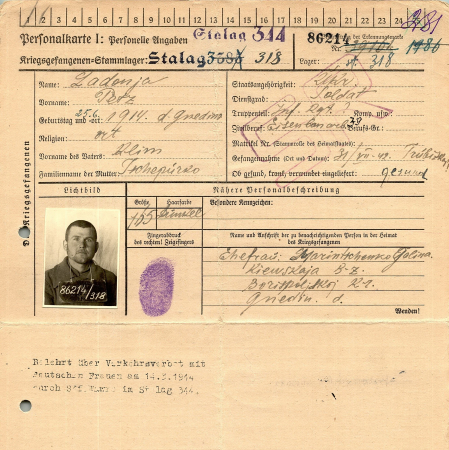 1 2 3 4 5 6 7 8 9 10 11 12 13 14 15 16 17 18 19 20 21 22 23 24 25
Personalkarte I: Personelle Angaben
Stalag 344
86214
Kriegsgefangenen-Stammlager: Stalag 318
Lager: 318
Des Kriegsgefangenen
Name: Ladonja
Vorname: Petr
Geburtstag und -ort: 25.6.1914. d. Gnedin
Religion: ort
Vorname des Vaters: Klim
Familienname der Mutter: Tschepurko
Staatsangehörigkeit: Ukr.
Dienstgrad: Soldat
Truppenteil: Inf. Rgt. ? Komp. usw.:
Zivilberuf: Berufs-Gr.:
Matrikel Nr. (Stammrolle des Heimatstaates):
Gefangennahme (Ort und Datum): 31/VII-42.
Ob gesund, krank, verwundet eingeliefert: gesund
Lichtbild
Größe
Haarfarbe
165
dunkel
Nähere Personalbeschreibung
Besondere Kennzeichen:
Fingerabdruck
des rechten! Zeigefingers
Name und Anschrift der zu benachrichtigenden Person in der Heimat
des Kriegsgefangenen
86214/318
Ehefrau: Marintschenko Galina
Kiewskaja
Gnedin d.
Wenden!
Belehrt über Verkehrsverbot mit
deutschen Frauen am 14.3.1944
durch in Stalag 344.